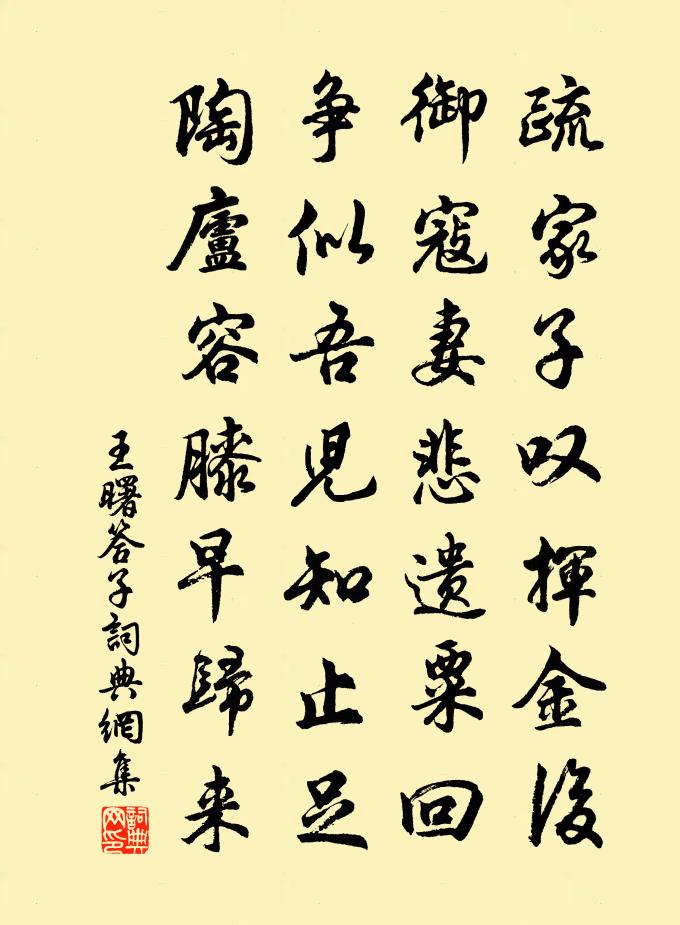 疏家子叹揮金後
御寇妻悲遺粟回
争似吾児知止足
陶廬容膝早歸来
王曙答子詞典網集
詞典网印